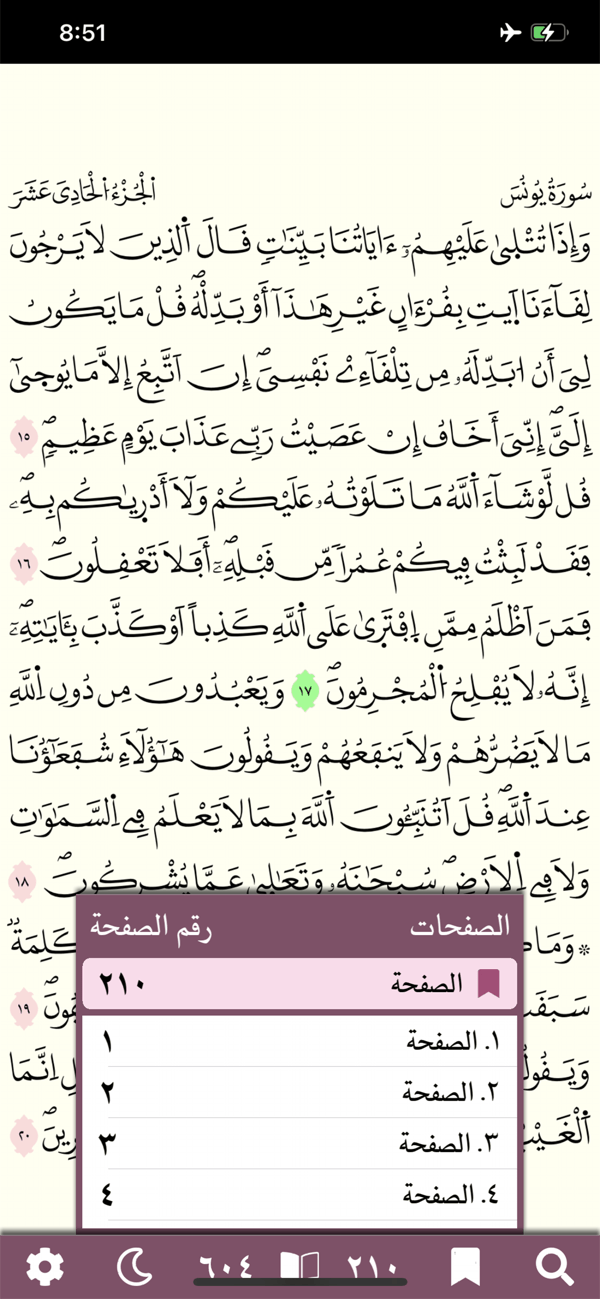 8:51
سُورَةُ يُونُسَ
اَلْجُزْءُ اَلْحَادِىَ عَشَرَ
وَإِذَا تُتْلۭىٰ عَلَيْهِمُۥٓ ءَايَاتُنَا بَيِّنَٰتٖ قَالَ اَلذِينَ لَا يَرْجُونَ
لِقَآءَنَا اَ۪يتِ بِقُرْءَانٍ غَيْرِ هَٰذَآ أَوْ بَدِّلْهُۖ قُلْ مَا يَكُونُ
لِىَ أَنُ ا۟بَدِّلَهُۥ مِن تِلْقَآءِےْ نَفْسِىَۖ إِنَ اَتَّبِعُ إِلَّا مَا يُوحۭىٰٓ
إِلَىَّۖ إِنِّىَ أَخَافُ إِنْ عَصَيْتُ رَبِّے عَذَابَ يَوْمٍ عَظِيمٖۖ ١٥
قُل لَّوْ شَآءَ اَ۬للَّهُ مَا تَلَوْتُهُۥ عَلَيْكُمْ وَلَآ أَدْر۪ىٰكُم بِهِۦۖ
فَقَدْ لَبِثْتُ فِيكُمْ عُمُراٗ مِّن قَبْلِهِۦٓۖ أَفَلَا تَعْقِلُونَۖ ١٦
فَمَنَ اَظْلَمُ مِمَّنِ اِ۪فْتَر۪ىٰ عَلَى اَ۬للَّهِ كَذِباً اَوْ كَذَّبَ بِـَٔايَٰتِهِۦٓۖ
إِنَّهُۥ لَا يُفْلِحُ اُ۬لْمُجْرِمُونَۖ ١٧ وَيَعْبُدُونَ مِن دُونِ اِ۬للَّهِ
مَا لَا يَضُرُّهُمْ وَلَا يَنفَعُهُمْ وَيَقُولُونَ هَٰٓؤُلَآءِ شُفَعَٰٓؤُنَا
عِندَ اَ۬للَّهِۖ قُلَ اَتُنَبِّـُٔونَ اَ۬للَّهَ بِمَا لَا يَعْلَمُ فِے اِ۬لسَّمَٰوَٰتِ
وَلَا فِے اِ۬لَارْضِۖ سُبْحَٰنَهُۥ وَتَعَٰل۪ىٰ عَمَّا يُشْرِكُونَۖ ١٨
۞ وَمَا كَلِمَةٞ
١٩
وَيَقُولُ إِنَّمَا
اَ۬لْغَيْبُ ٢٠
الصفحات رقم الصفحة
الصفحة ٢١٠
١. الصفحة ١
٢. الصفحة ٢
٣. الصفحة ٣
٤. الصفحة ٤
٢١٠ ٦٠٤